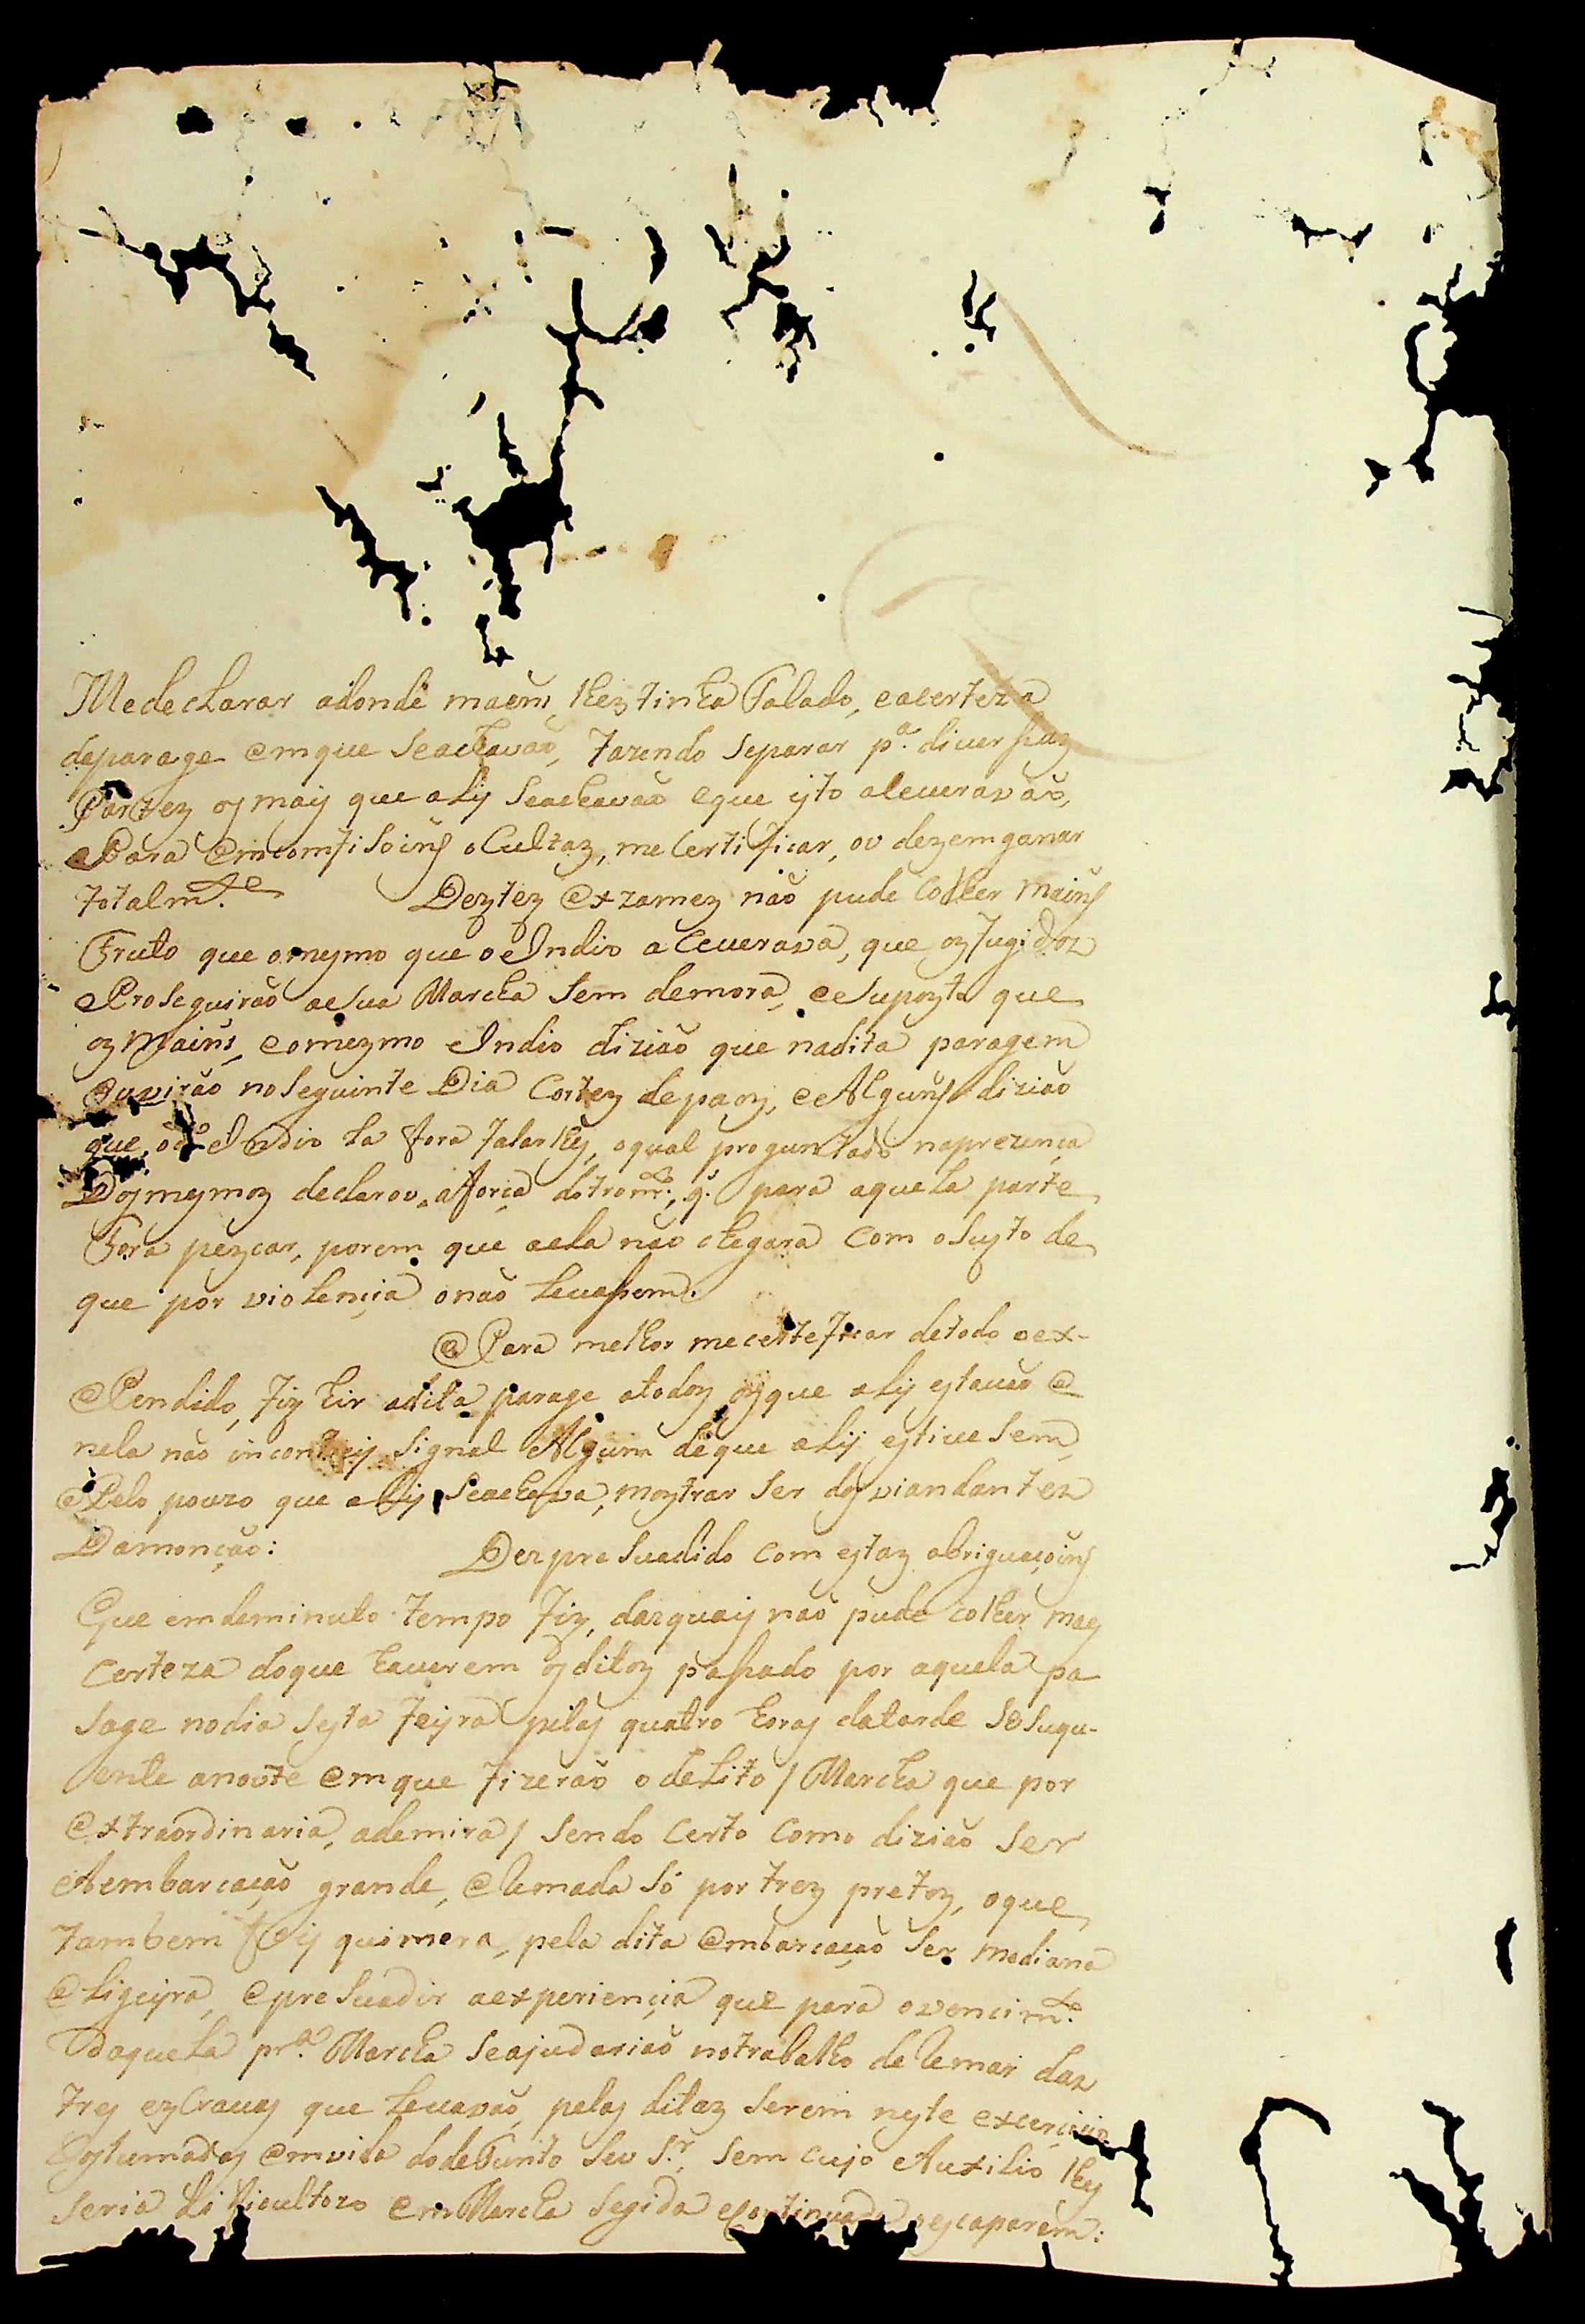 Me declarar adonde maeins lhez tinha Falado, eacerteza
deparage emque Seachavaõ, fazendo Separar p.ª diversaz
Partez oz maiz que aly Seachavaõ eque isto aseveravaõ,
Para emcomfisoins oCultaz, me Certificar, ou dezemganar
totalm.te Deztez Exzamez naõ pude Colher mains
Fruto que omezmo que o Indio aSeverava, que oz fugidoz
Proseguiraõ aSua Marcha Sem demora, eSupozto que
oz Mains, eomezmo Indio diziaõ que nadita paragem
Ouviraõ noSeguinte Dia Cortez depaoz, eAlguns diziaõ
que od.º Indio la fora falarlhez, oqual proguntado naprezença
Dozmezmoz declarou, aforça dotrom.to, q. para aquela parte
Fora pezcar, porem que aela naõ chegara Com oSusto de
que por violençia onaõ levasem.
Para melhor mecerteficar detodo oex-
Pendido, fiz hir adita parage atodoz ozque aly estavaõ e
nela naõ incontrey Signal Algum deque aly estiveSem,
Pelo pouzo que aly Seachava, moztrar Ser doz viandantez
Damonçaõ: Dezpresuadido Com estaz abriguaçoins
Que emdeminuto tempo fiz, dazquaiz naõ pude colher maez
Certeza doque haverem oz ditoz pasado por aquela pa
Sage nodia Sesta feyra pelaz quatro horaz datarde SoSuqu-
ente anoute emque fizeraõ odelito / Marcha que por
extraordinaria, ademira / Sendo Certo Como diziaõ Ser
Aembarcaçaõ grande, eRemada Só por trez pretoz, oque
tambem foy quimera, pela dita embarcaçaõ Ser mediana
eLigeyra, epreSuadir aexperiençia que para ovencim.to
Daquela pr.ª Marcha Seajudariaõ notrabalho deRemar daz
trez ezCravaz que Levavaõ, pelaz ditaz Serem neste exerçiçio
Costumadaz emvida dodeFunto Seu S.r, Sem Cujo Auxilio lhez
Seria dificultozo emMarcha Segida eContinuada escaparem: